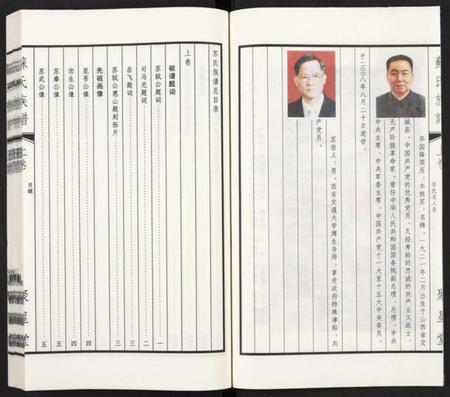 苏氏名人录
华国锋简历：本姓苏，名铸，一九二一年二月出生于山西省交
城县，中国共产党的优秀党员，久经考验的忠诚的共产主义战士，
无产阶级革命家，曾任中华人民共和国国务院副总理，总理，中共
中央主席，中央军委主席，中国共产党十一大至十五大中央委员。
于二〇〇八年八月二十日逝世。
苏俊义：男，西安交通大学博生导师，享受政府特殊津贴，共
产党员。
聚星堂
苏氏族谱总目录
上卷
祖谱题词
苏轼公题词 一
司马光题词 二
岳飞题词 三
苏轼公惠山题刻拓片 三
先祖画像
昆吾公像 四
忿生公像 四
苏秦公像 五
苏武公像 五
目録
聚星堂